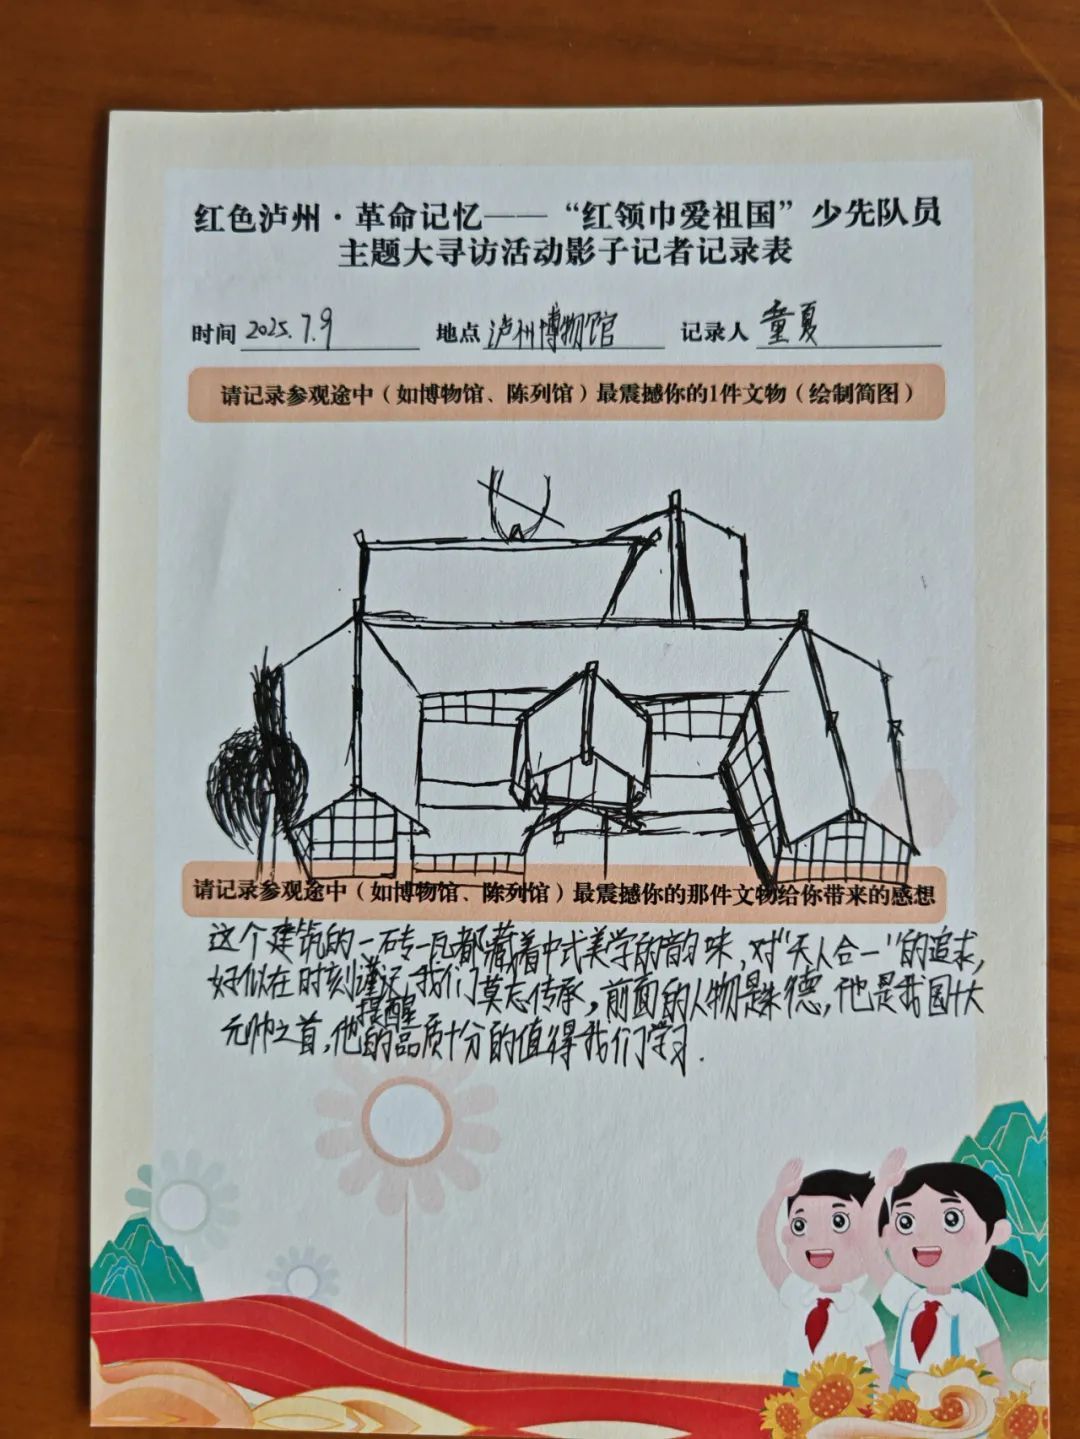 红色泸州·革命记忆——“红领巾爱祖国”少先队员
主题大寻访活动影子记者记录表
时间 2025.7.9 地点 泸州博物馆 记录人 童夏
请记录参观途中（如博物馆、陈列馆）最震撼你的1件文物（绘制简图）
请记录参观途中（如博物馆、陈列馆）最震撼你的那件文物给你带来的感想
这个建筑的一砖一瓦都藏着中式美学的韵味，对“天人合一”的追求，
好似在时刻谨记我们莫忘传承，前面的人物是朱德，他是我国十大
提醒
元帅之首，他的品质十分的值得我们学习.